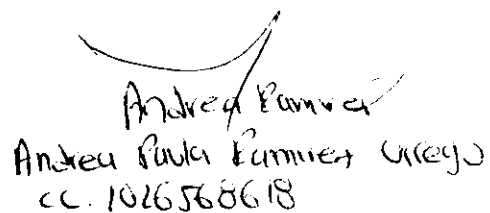 Andrea Ramirez
Andrea Paula Ramirez Urrego
CC. 1026568618